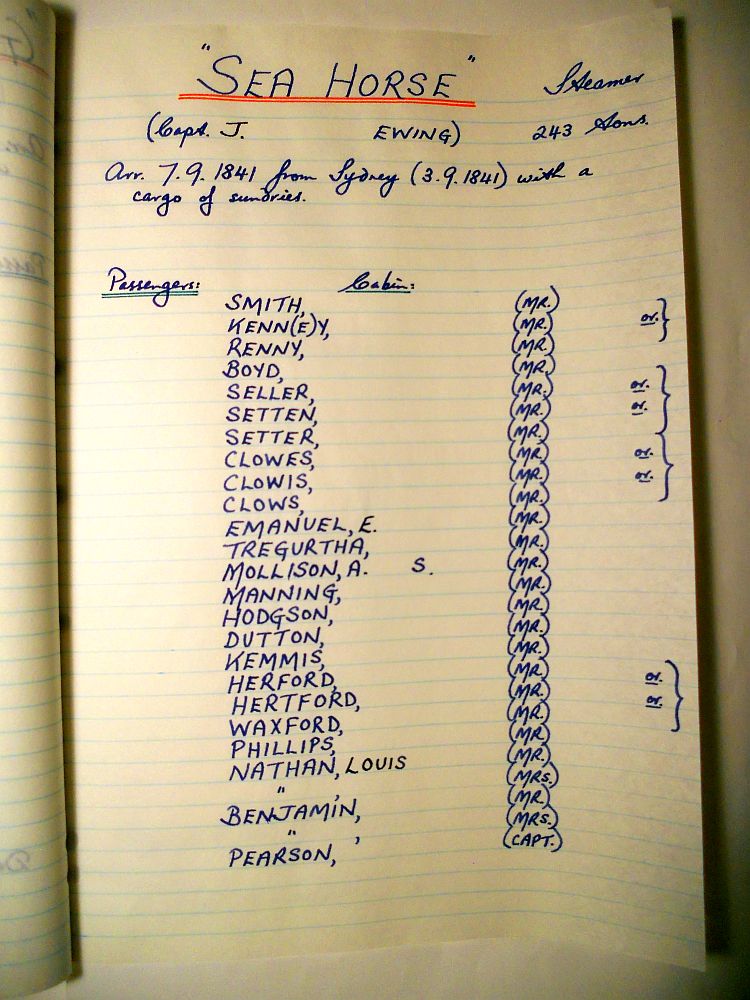 "SEA HORSE" Steamer
(Capt. J. EWING) 243 tons.
Arr. 7.9.1841 from Sydney (3.9.1841) with a
cargo of sundries.
Passengers: Cabin:
SMITH, (MR.)
KENN(E)Y, (MR.) or.
RENNY, (MR.)
BOYD, (MR.)
SELLER, (MR.) or.
SETTEN, (MR.) or.
SETTER, (MR.)
CLOWES, (MR.) or.
CLOWIS, (MR.) or.
CLOWS, (MR.)
EMANUEL, E. (MR.)
TREGURTHA, (MR.)
MOLLISON, A. S. (MR.)
MANNING, (MR.)
HODGSON, (MR.)
DUTTON, (MR.)
KEMMIS, (MR.)
HERFORD, (MR.) or.
HERTFORD, (MR.) or.
WAXFORD, (MR.)
PHILLIPS, (MR.)
NATHAN, LOUIS (MR.)
" , (MRS.)
BENJAMIN, (MR.)
" , (MRS.)
PEARSON, (CAPT.)